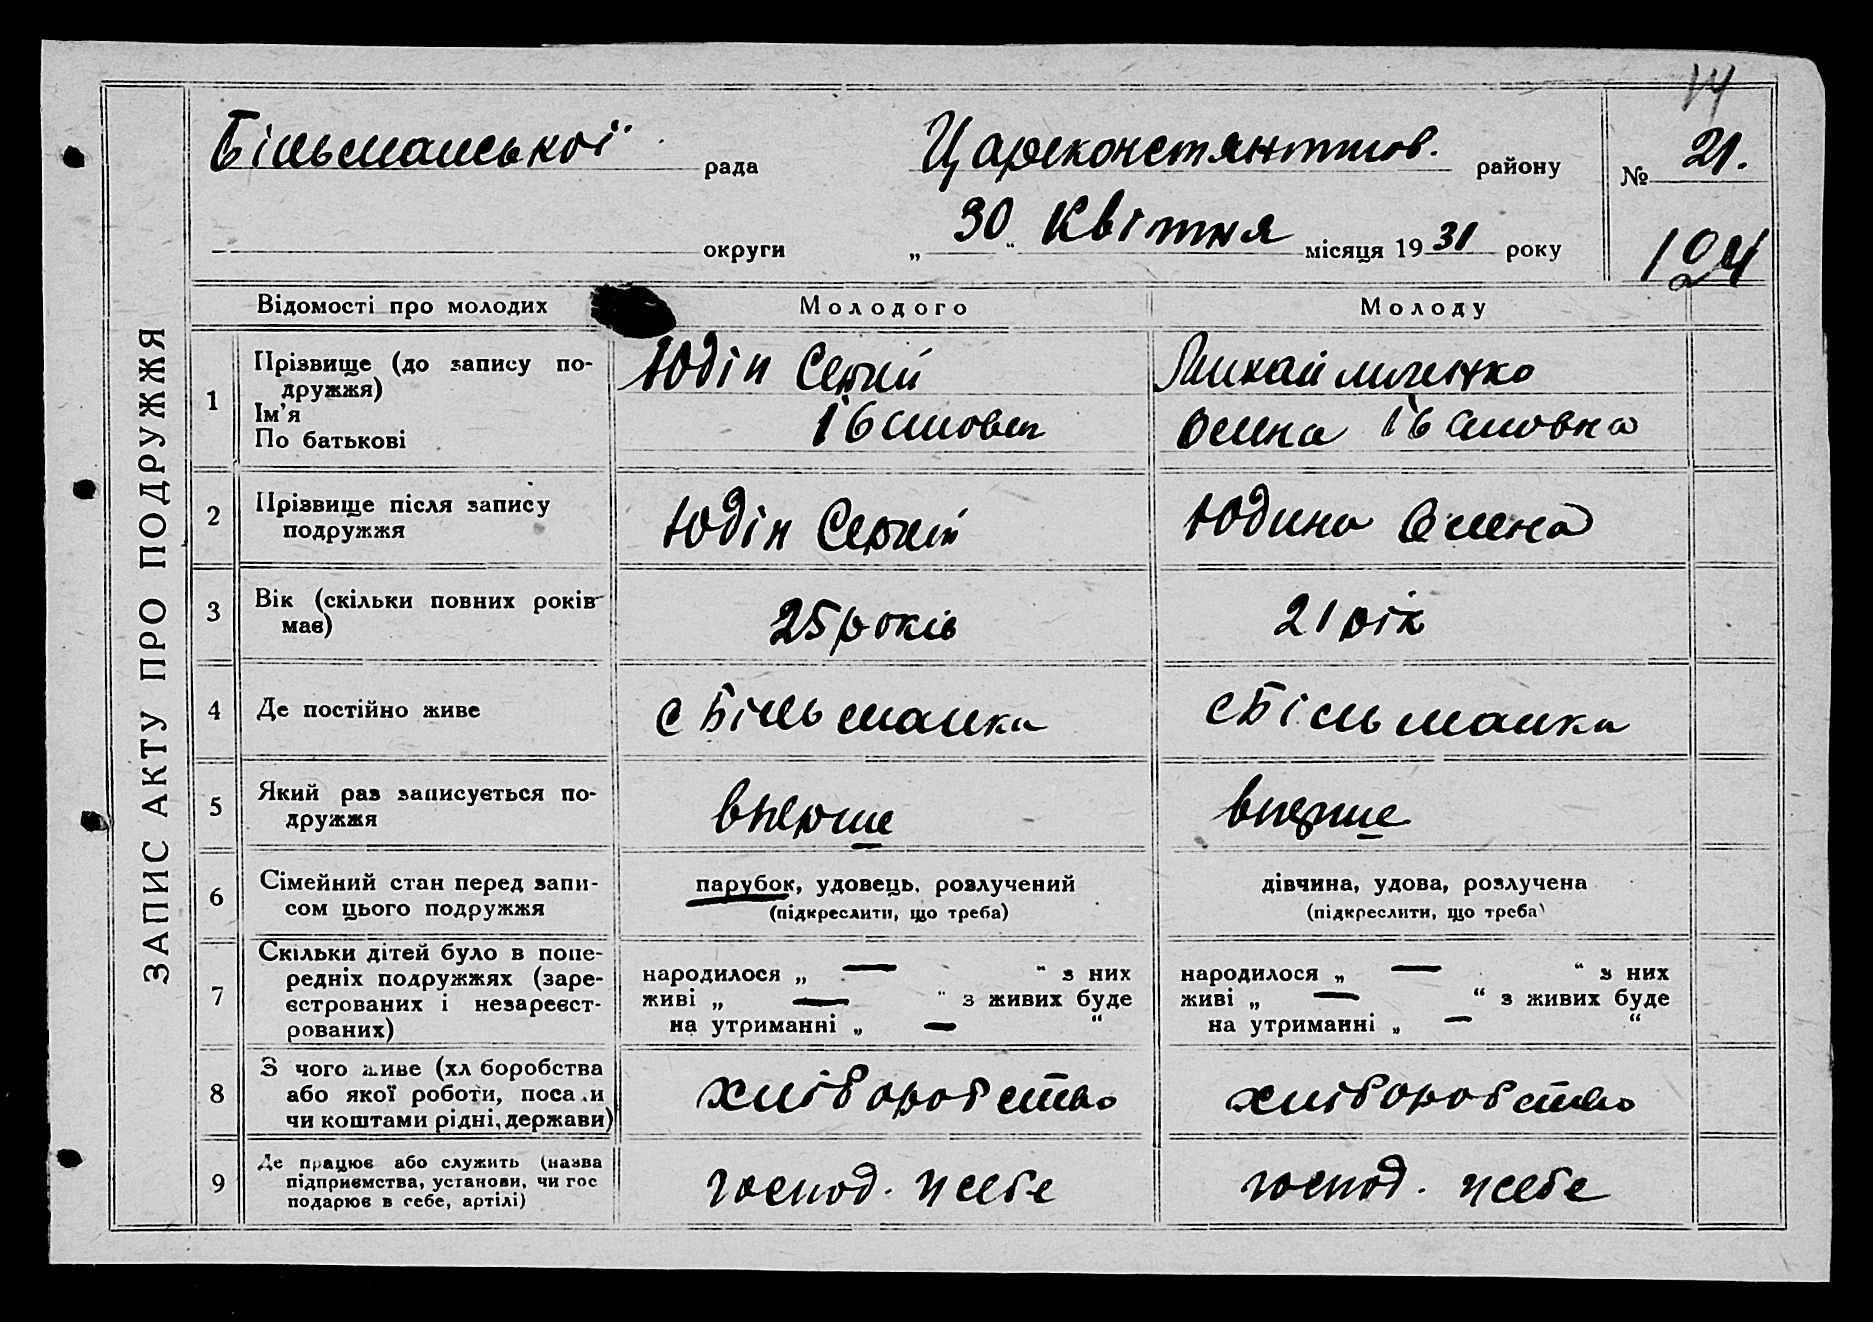 14
Більманської рада Цареконстянтинов. району № 21.
округи „30“ Квітня місяця 1931 року
124
ЗАПИС АКТУ ПРО ПОДРУЖЖЯ
Відомості про молодих Молодого Молоду
1 Прізвище (до запису по-
дружжя)
Ім'я
По батькові
Юдін Сергій
Іванович
Михайличенко
Олена Івановна
2 Прізвище після запису
подружжя
Юдін Сергій
Юдина Олена
3 Вік (скільки повних років
має)
25 років
21 рік
4 Де постійно живе
с Більманка
с Більманка
5 Який раз записується по-
дружжя
вперше
вперше
6 Сімейний стан перед запи-
сом цього подружжя
парубок, удовець, розлучений
(підкреслити, що треба)
дівчина, удова, розлучена
(підкреслити, що треба)
7 Скільки дітей було в попе-
редніх подружжях (заре-
єстрованих і незареєст-
рованих)
народилося „ — “ з них
живі „ — “ з живих буде
на утриманні „ — “
народилося „ — “ з них
живі „ — “ з живих буде
на утриманні „ — “
8 З чого живе (хліборобства
або якої роботи, посади
чи коштами рідні, держави)
хліборобство
хліборобство
9 Де працює або служить (назва
підприємства, установи, чи гос
подарює в себе, артілі)
господ. у себе
господ. у себе